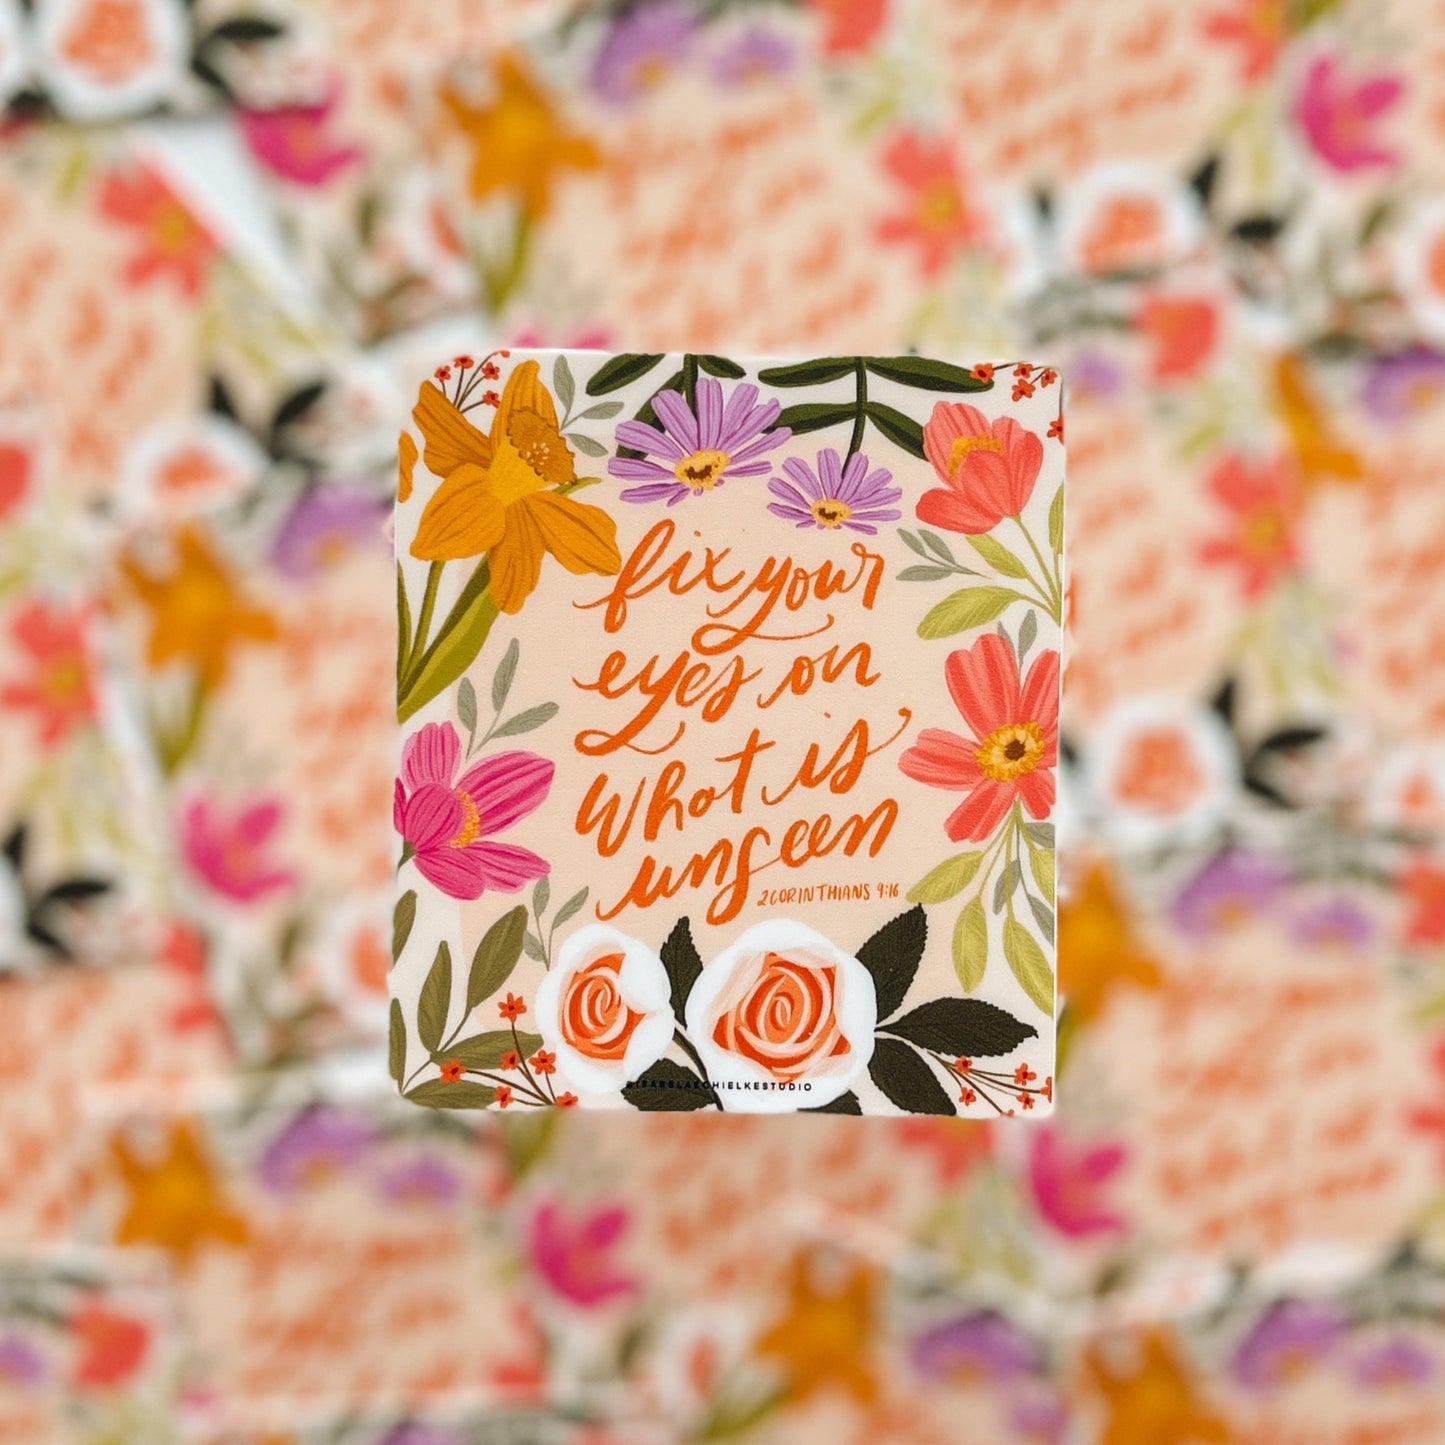 fix your
eyes on
what is
unseen
2 CORINTHIANS 9:16
@ISABELASCHIELKESTUDIO